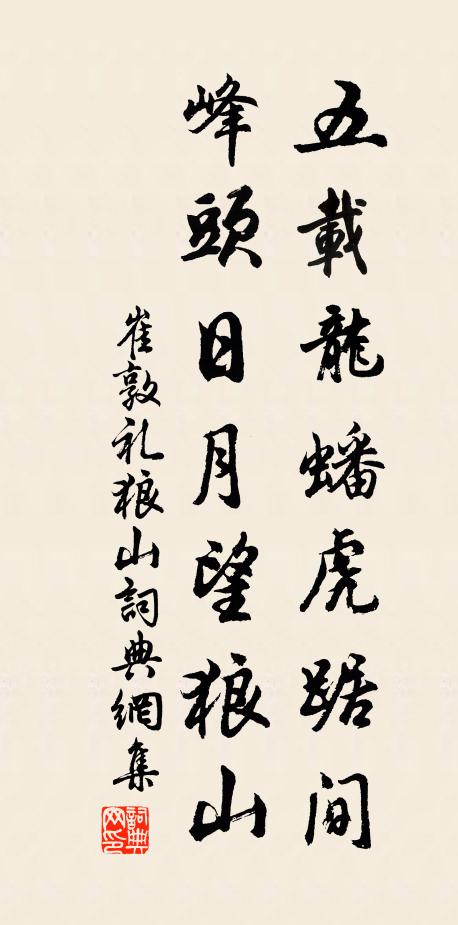 五載龍蟠虎踞间
峰頭日月望狼山
崔敦礼狼山詞典網集
詞典网印